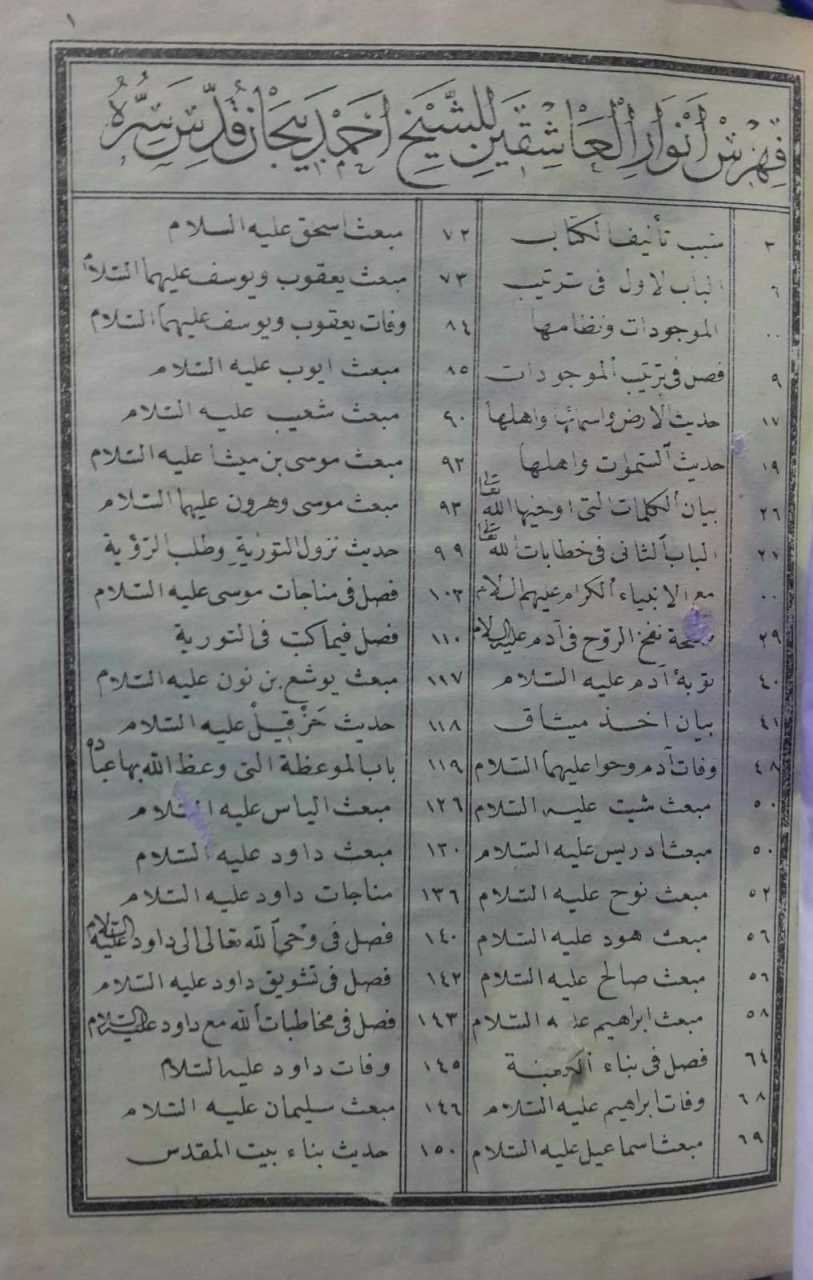 ١
فهرس أنوار العاشقين للشيخ احمد بيجان قدس سره
٢ سبب تأليف الكتاب
٦ الباب الاول فى ترتيب
٠٠ الموجودات ونظامها
٩ فصل فى ترتيب الموجودات
١٧ حديث الارض واسمائها واهلها
١٩ حديث السموات واهلها
٢٦ بيان الكلمات التى اوحيها الله تعالى
٢٧ الباب الثانى فى خطابات الله تعالى
٠٠ مع الانبياء الكرام عليهم السلام
٢٩ نفخ الروح فى آدم عليه السلام
٤٠ توبۀ آدم عليه السلام
٤١ بيان اخذ ميثاق
٤٨ وفات آدم وحوا عليهما السلام
٥٠ مبعث شيت عليه السلام
٥٠ مبعث ادريس عليه السلام
٥٢ مبعث نوح عليه السلام
٥٦ مبعث هود عليه السلام
٥٦ مبعث صالح عليه السلام
٥٨ مبعث ابراهيم عليه السلام
٦٤ فصل فى بناء الكعبة
٦٨ وفات ابراهيم عليه السلام
٦٩ مبعث اسماعيل عليه السلام
٧٢ مبعث اسحق عليه السلام
٧٣ مبعث يعقوب ويوسف عليهما السلام
٨٤ وفات يعقوب ويوسف عليهما السلام
٨٥ مبعث ايوب عليه السلام
٩٠ مبعث شعيب عليه السلام
٩٢ مبعث موسى بن ميشا عليه السلام
٩٣ مبعث موسى وهرون عليهما السلام
٩٩ حديث نزول التورية وطلب الرؤية
١٠٣ فصل فى مناجات موسى عليه السلام
١١٠ فصل فيما كتب فى التورية
١١٧ مبعث يوشع بن نون عليه السلام
١١٨ حديث حزقيل عليه السلام
١١٩ باب الموعظة التى وعظ الله بها عباده
١٢٦ مبعث الياس عليه السلام
١٣٠ مبعث داود عليه السلام
١٣٦ مناجات داود عليه السلام
١٤٠ فصل فى وحى الله تعالى الى داود عليه السلام
١٤٢ فصل فى تشويق داود عليه السلام
١٤٣ فصل فى مخاطبات الله مع داود عليه السلام
١٤٥ وفات داود عليه السلام
١٤٦ مبعث سليمان عليه السلام
١٥٠ حديث بناء بيت المقدس